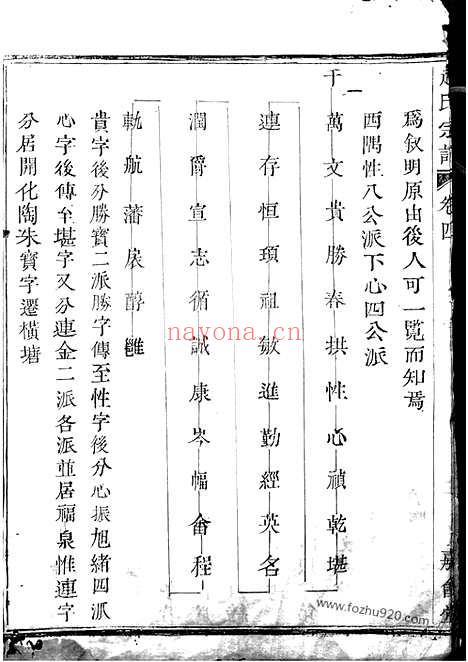 趙氏宗譜 卷四
爲叙明原由後人可一覽而知焉
西隅性八公派下心四公派
一
于
萬文貴勝春拱性心禎乾堪
連存恒頊祖敏進勤經英名
潤爵宣志循誠康岑幅畬程
軌航藩扆醇雝
貴字後分勝寶二派勝字傳至性字後分心振旭緒四派
心字後傳至堪字又分連金二派各派並居福泉惟連字
分居開化陶朱寶字遷橫塘
nayona.cn
www.fozhu920.com